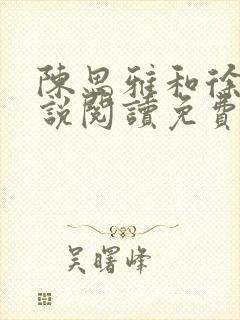 陳恩雅和徐
說閱讀免費
吳曙峰